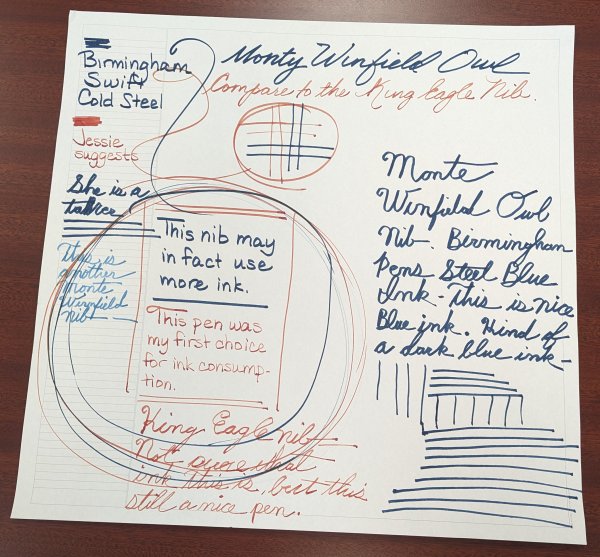 Monty Winfield Owl
Compare to the King Eagle Nib.
Birmingham
Swift
Cold Steel
Jessie
suggests
She is a
This is
another
Monte
Winfield
Nib -
This nib may
in fact use
more ink.
This pen was
my first choice
for ink consump-
tion.
King Eagle nib
Not sure what
ink this is, but this
still a nice pen.
Monte
Winfield Owl
Nib. Birmingham
Pens Steel Blue
Ink - This is nice
Blue ink. Kind of
a dark blue ink -